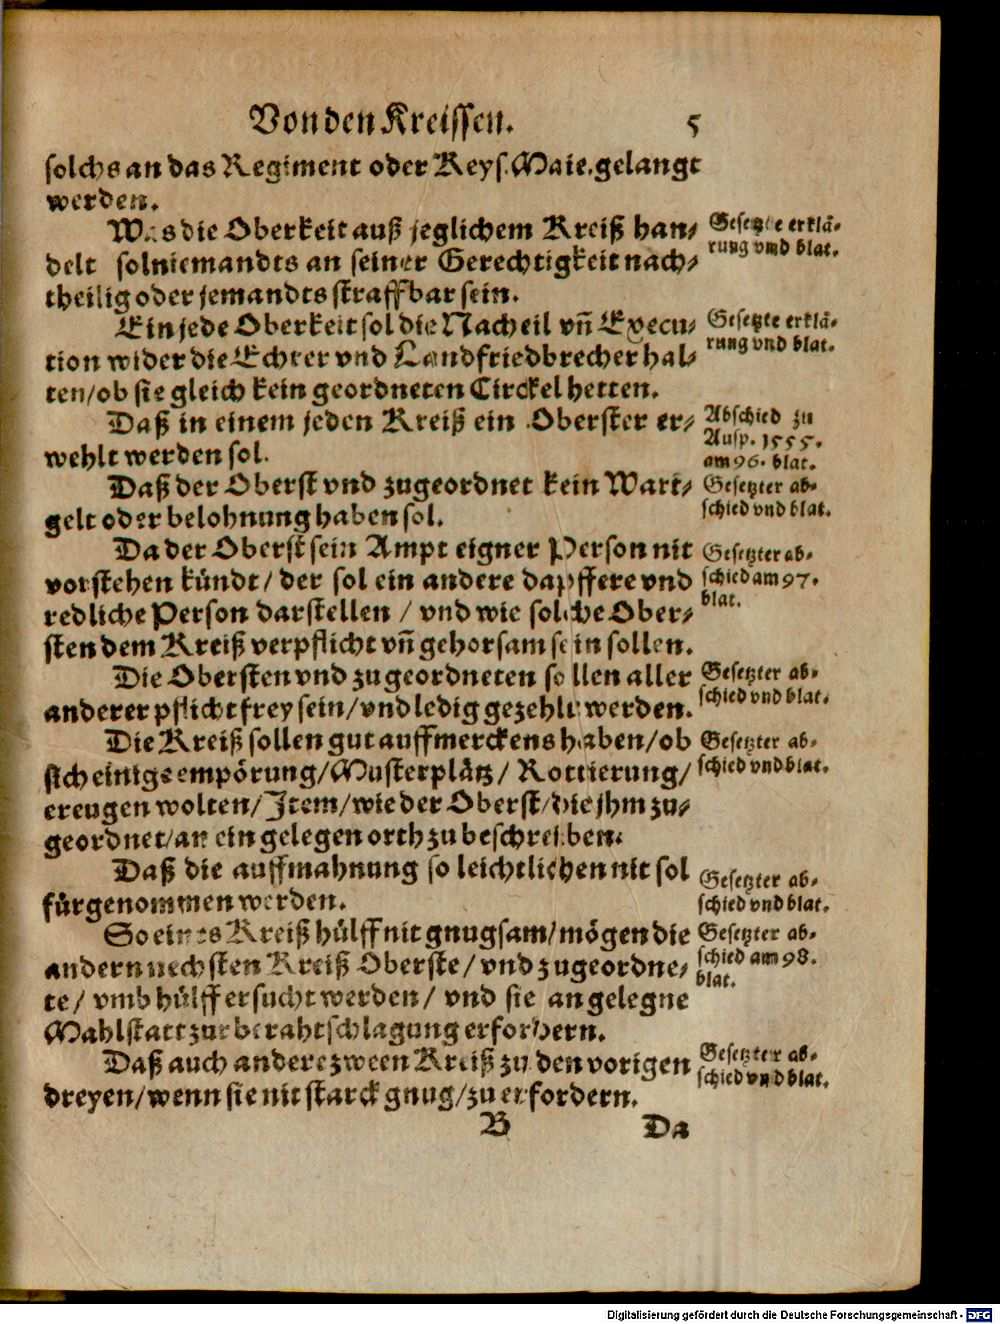 Von den Kreissen. 5
solchs an das Regiment oder Keys. Maie. gelangt
werden.
Was die Oberkeit auß jeglichem Kreiß han⸗
delt sol niemandts an seiner Gerechtigkeit nach⸗
theilig oder jemandts straffbar sein.
Gesetzte erklä⸗
rung vnd blat.
Ein jede Oberkeit sol die Nacheil vñ Execu⸗
tion wider die Echter vnd Landfriedbrecher hal⸗
ten/ ob sie gleich kein geordneten Circkel hetten.
Gesetzte erklä⸗
rung vnd blat.
Daß in einem jeden Kreiß ein Oberster er⸗
wehlt werden sol.
Abschied zu
Ausp. 1555.
am 96. blat.
Daß der Oberst vnd zugeordnet kein Wart⸗
gelt oder belohnung haben sol.
Gesetzter ab⸗
schied vnd blat.
Da der Oberst sein Ampt eigner Person nit
vorstehen kündt/ der sol ein andere dapffere vnd
redliche Person darstellen / vnd wie solche Ober⸗
sten dem Kreiß verpflicht vñ gehorsam sein sollen.
Gesetzter ab⸗
schied am 97.
blat.
Die Obersten vnd zugeordneten sollen aller
anderer pflicht frey sein/ vnd ledig gezehlt werden.
Gesetzter ab⸗
schied vnd blat.
Die Kreiß sollen gut auffmerckens haben/ ob
sich einige empörung/ Musterplätz/ Rottierung/
ereugen wolten/ Item/ wie der Oberst/ die jhm zu⸗
geordnet/ an ein gelegen orth zu beschreiben.
Gesetzter ab⸗
schied vnd blat.
Daß die auffmahnung so leichtlichen nit sol
fürgenommen werden.
Gesetzter ab⸗
schied vnd blat.
So eines Kreiß hülff nit gnugsam/ mögen die
andern nechsten Kreiß Oberste/ vnd zugeordne⸗
te/ vmb hülff ersucht werden/ vnd sie an gelegne
Mahlstatt zur berahtschlagung erfordern.
Gesetzter ab⸗
schied am 98.
blat.
Daß auch andere zween Kreiß zu den vorigen
dreyen/ wenn sie nit starck gnug/ zu erfordern.
Gesetzter ab⸗
schied vnd blat.
B Da
Digitalisierung gefördert durch die Deutsche Forschungsgemeinschaft - DFG